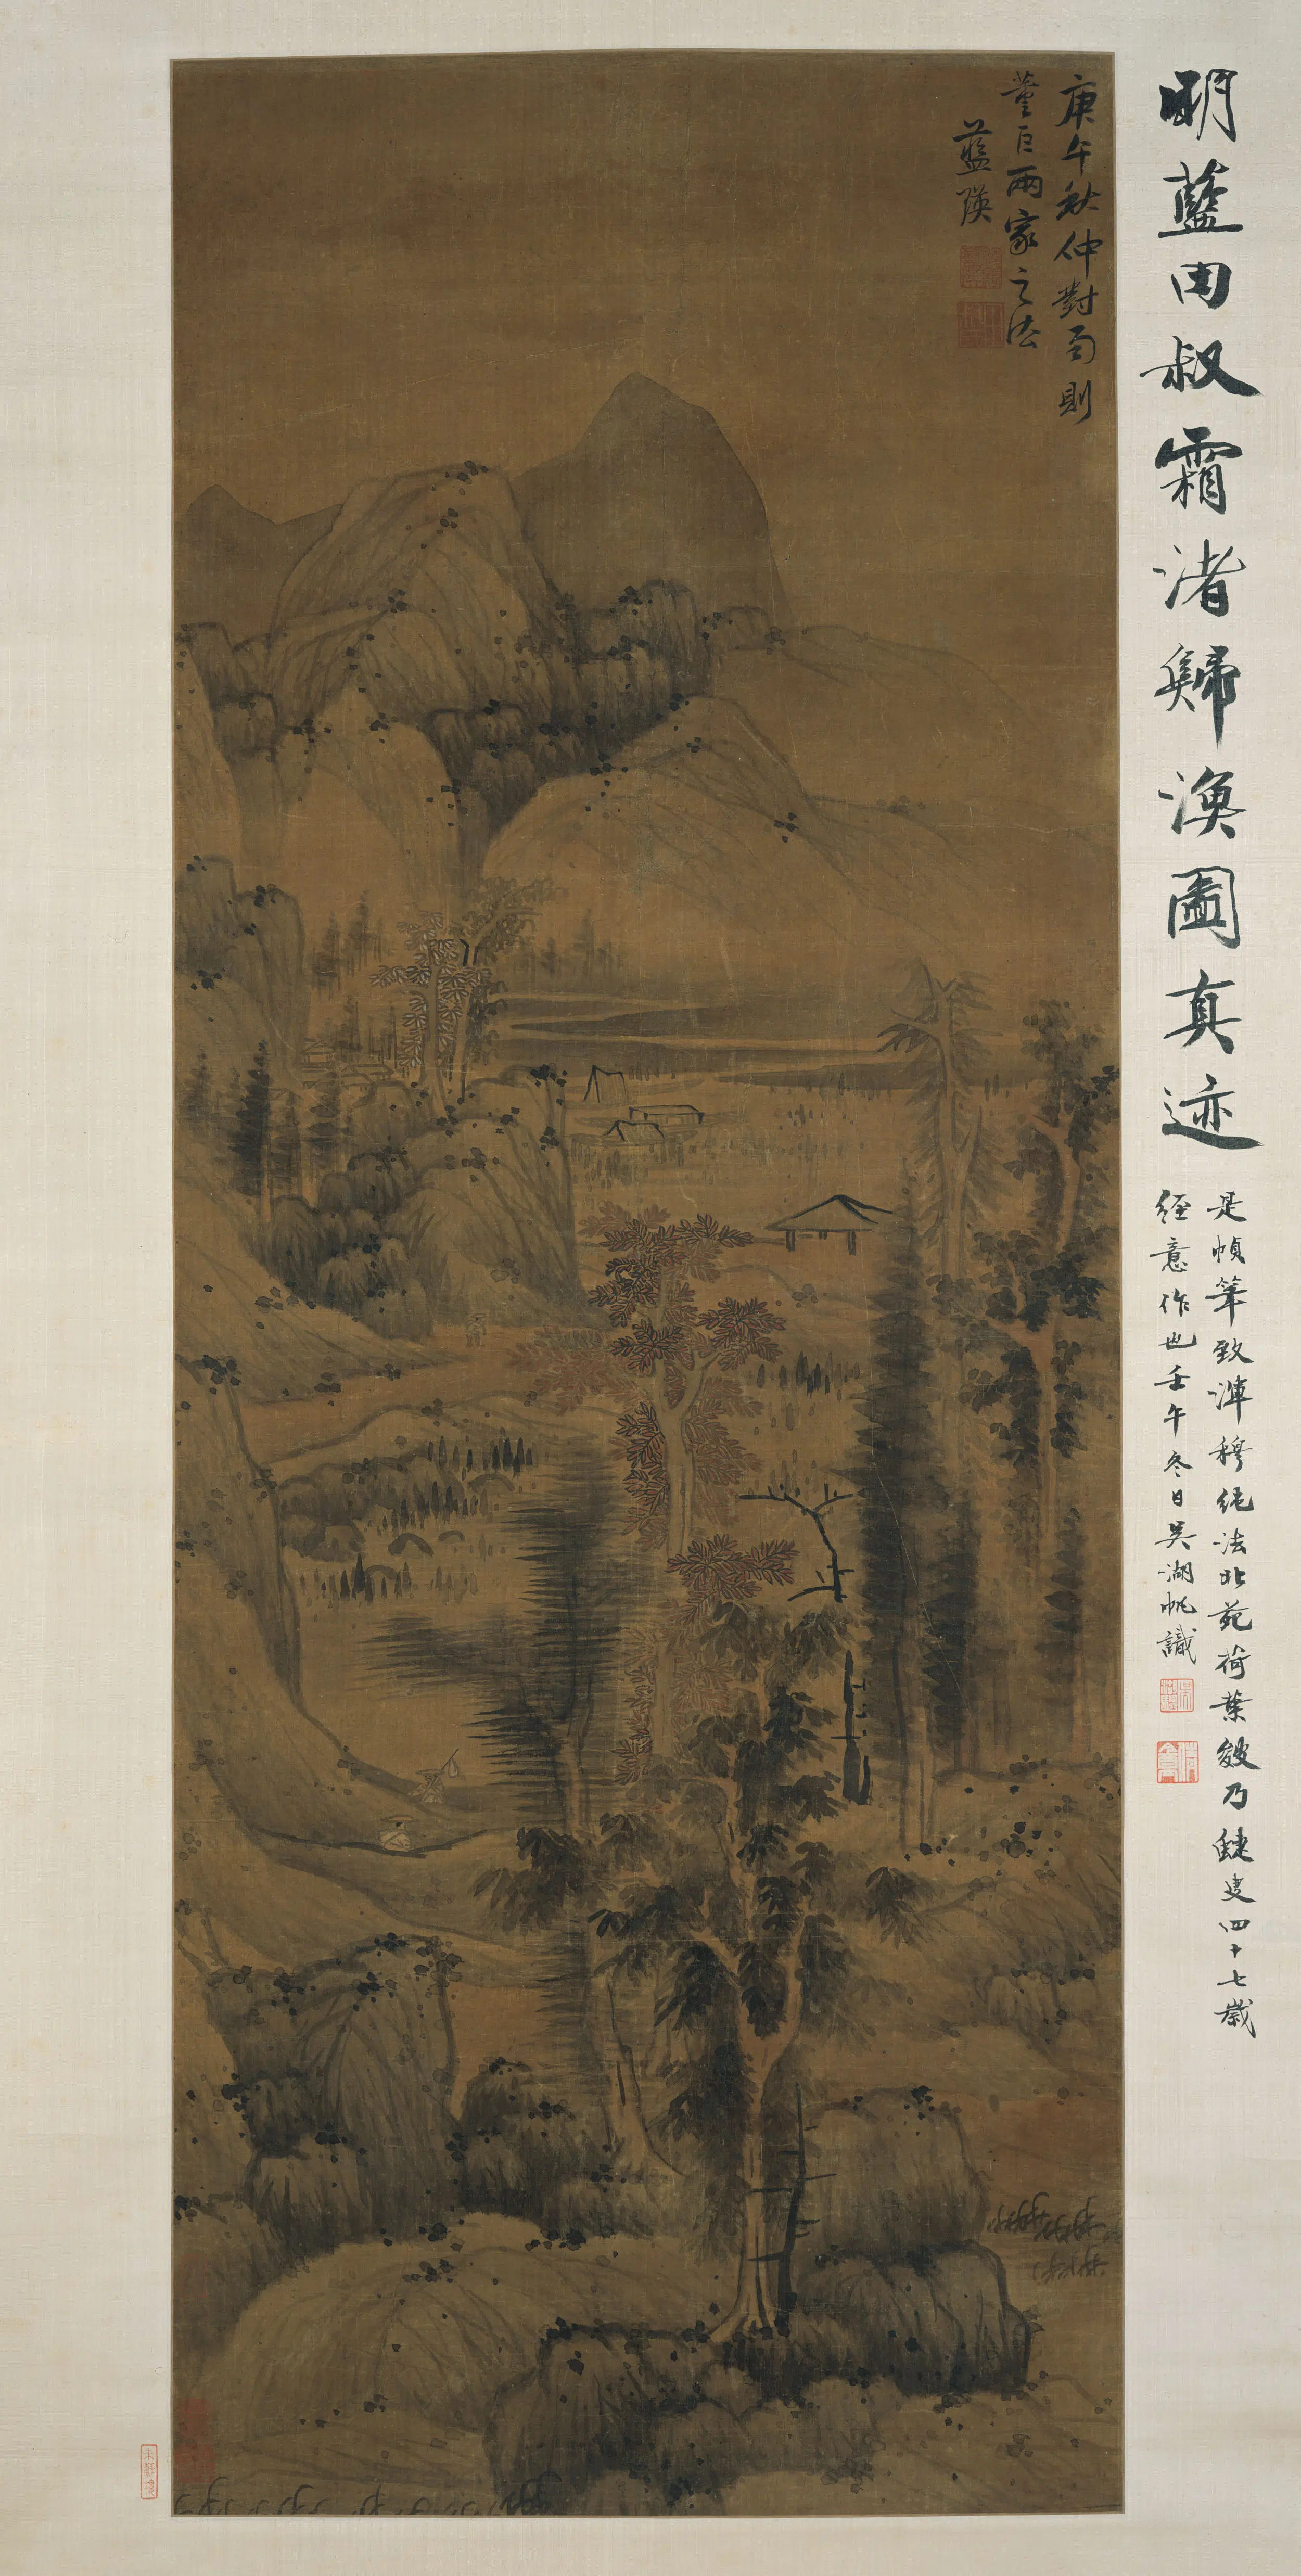 明藍田叔霜渚歸漁圖真迹
是幀筆致渾穆純法北苑荷葉皴乃蜨叟四十七歲
經意作也壬午冬日吳湖帆識
庚午秋仲對雨則
董巨兩家之法
藍瑛